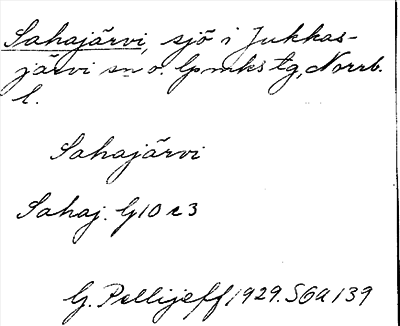 Sahajärvi, sjö i Jukkas-
järvi sn o. lpmks tg, Norrb.
l.
Sahajärvi
Sahaj. G10 c3
G. Pellijeff 1929. SGA 139